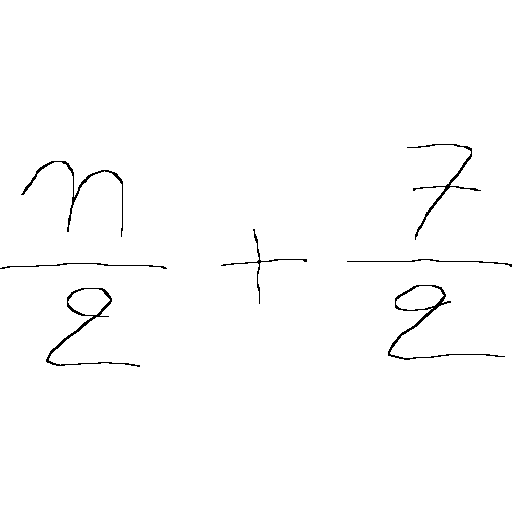 \frac{n}{2} + \frac{7}{2}